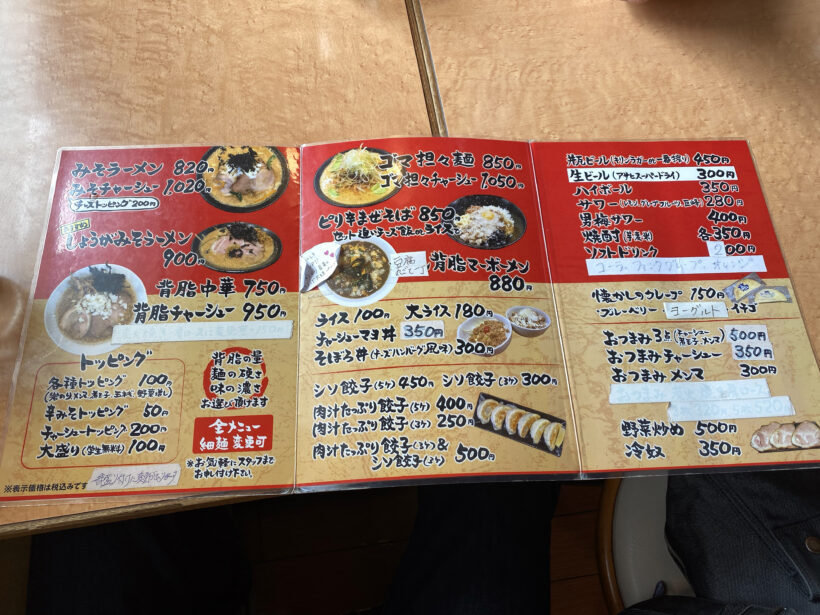 みそラーメン 820円
みそチャーシュー 1,020円
チーズトッピング200円
しょうがみそラーメン
900円
背脂中華 750円
背脂チャーシュー 950円
トッピング
各種トッピング 100円
辛みそトッピング 50円
チャーシュートッピング 200円
大盛り(学生無料) 100円
背脂の量
麺の硬さ
味の濃さ
お選び頂けます
全メニュー
細麺変更可
※お気軽にスタッフまで
お申し付け下さい。
※表示価格は税込みです
ゴマ担々麺 850円
ゴマ担々チャーシュー 1,050円
ピリ辛まぜそば 850円
セット追いチーズ飯orライス
豆腐
背脂マーボーメン
880円
ライス 100円 大ライス 180円
チャーシューマヨ丼 350円
そぼろ丼(チーズハンバーグ風味) 300円
シソ餃子(5ケ) 450円 シソ餃子(3ケ) 300円
肉汁たっぷり餃子(5ケ) 400円
肉汁たっぷり餃子(3ケ) 250円
肉汁たっぷり餃子(3ケ)&
シソ餃子(3ケ) 500円
瓶ビール(キリンラガーor一番搾り) 450円
生ビール(アサヒスーパードライ) 300円
ハイボール 350円
サワー(レモン、グレープフルーツ、巨峰) 280円
男梅サワー 400円
焼酎(芋、麦、米) 各350円
ソフトドリンク 200円
懐かしのクレープ 150円
・ブルーベリー ヨーグルト ・イチゴ
おつまみ3点(チャーシュー 煮玉子 メンマ) 500円
おつまみチャーシュー 350円
おつまみメンマ 300円
野菜炒め 500円
冷奴 350円